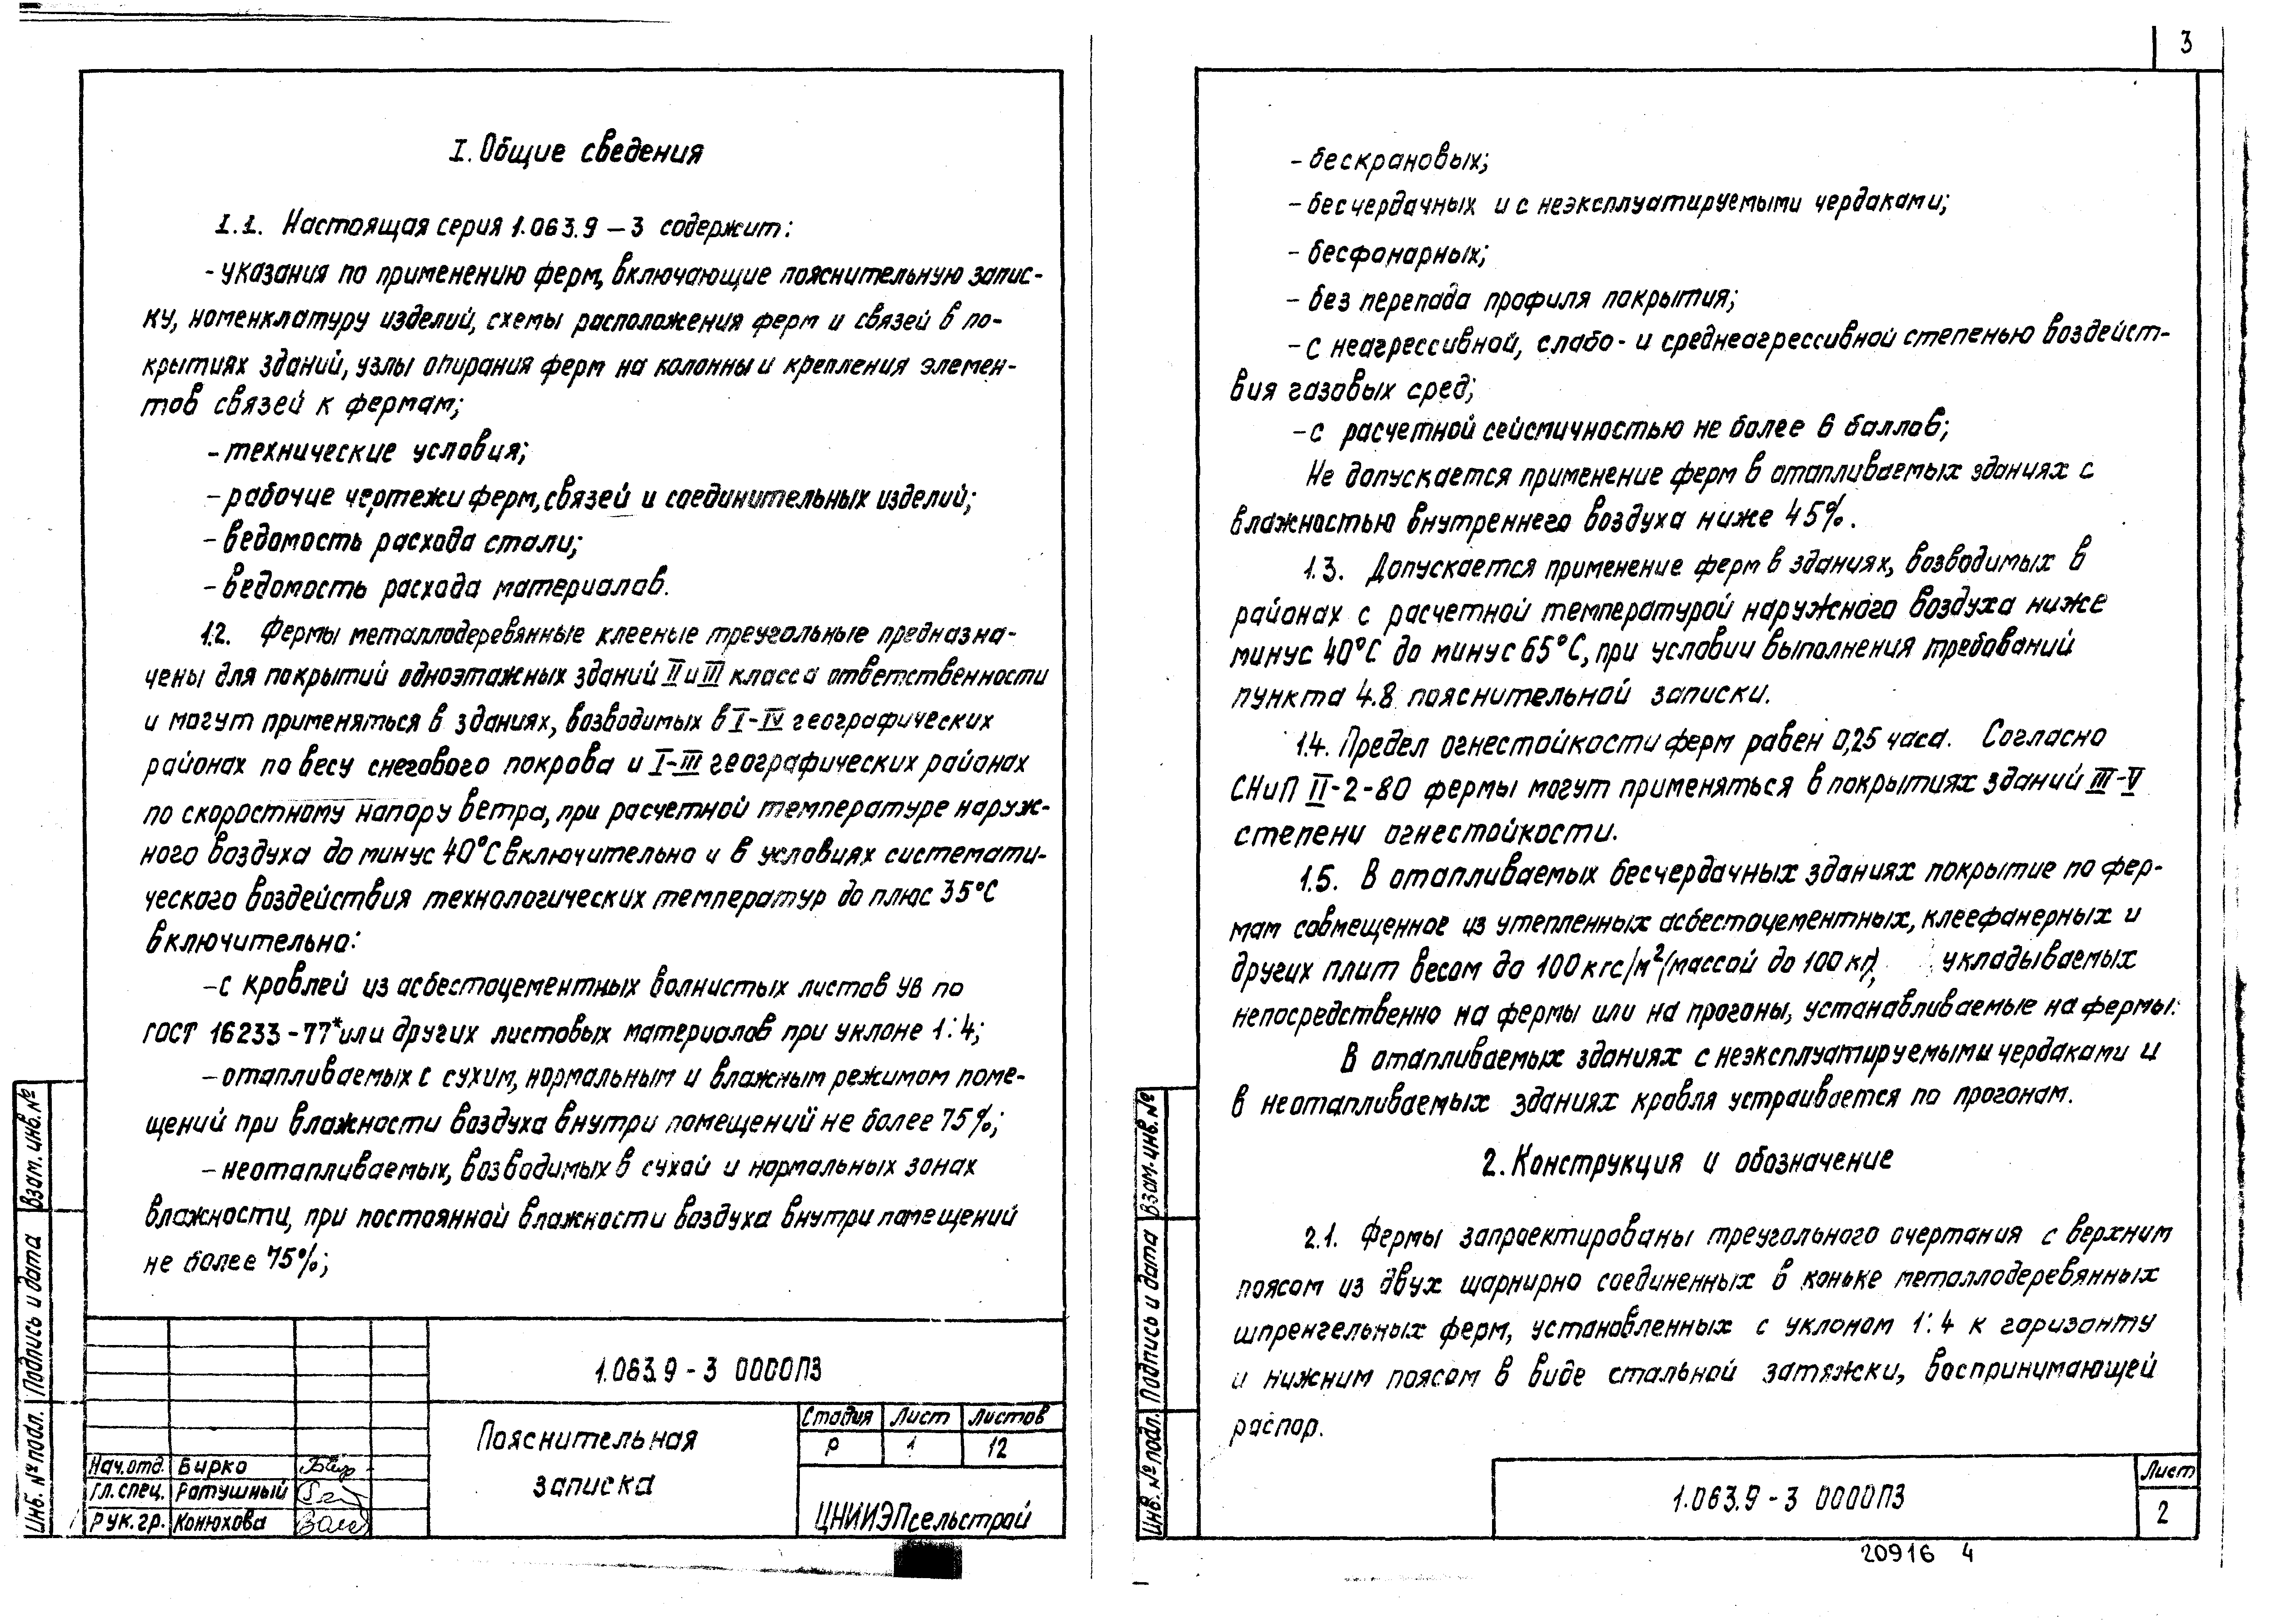 I. Общие сведения
I.I. Настоящая серия 1.063.9 – 3 содержит:
- указания по применению ферм, включающие пояснительную запис-
ку, номенклатуру изделий, схемы расположения ферм и связей в по-
крытиях зданий, узлы опирания ферм на колонны и крепления элемен-
тов связей к фермам;
- технические условия;
- рабочие чертежи ферм, связей и соединительных изделий;
- ведомость расхода стали;
- ведомость расхода материалов.
1.2. Фермы металлодеревянные клееные треугольные предназна-
чены для покрытий одноэтажных зданий II и III класса ответственности
и могут применяться в зданиях, возводимых в I-IV географических
районах по весу снегового покрова и I-III географических районах
по скоростному напору ветра, при расчетной температуре наруж-
ного воздуха до минус 40°С включительно и в условиях системати-
ческого воздействия технологических температур до плюс 35°С
включительно:
- с кровлей из асбестоцементных волнистых листов УВ по
ГОСТ 16233-77* или других листовых материалов при уклоне 1:4;
- отапливаемых с сухим, нормальным и влажным режимом поме-
щений при влажности воздуха внутри помещений не более 75%;
- неотапливаемых, возводимых в сухой и нормальных зонах
влажности, при постоянной влажности воздуха внутри помещений
не более 75%;
Взам. инв. №
Подпись и дата
Инв. № подл.
1.063.9 - 3 0000ПЗ
Пояснительная
записка
Стадия Лист Листов
Р 1 12
Нач.отд. Бирко
Гл. спец. Ратушный
Рук. гр. Конюхова
ЦНИИЭПсельстрой
3
- бескрановых;
- бесчердачных и с неэксплуатируемыми чердаками;
- бесфонарных;
- без перепада профиля покрытия;
- с неагрессивной, слабо- и среднеагрессивной степенью воздейст-
вия газовых сред;
- с расчетной сейсмичностью не более 6 баллов;
Не допускается применение ферм в отапливаемых зданиях с
влажностью внутреннего воздуха ниже 45%.
1.3. Допускается применение ферм в зданиях, возводимых в
районах с расчетной температурой наружного воздуха ниже
минус 40°С до минус 65°С, при условии выполнения требований
пункта 4.8 пояснительной записки.
1.4. Предел огнестойкости ферм равен 0,25 часа. Согласно
СНиП II-2-80 фермы могут применяться в покрытиях зданий III-V
степени огнестойкости.
1.5. В отапливаемых бесчердачных зданиях покрытие по фер-
мам совмещенное из утепленных асбестоцементных, клеефанерных и
других плит весом до 100 кгс/м² (массой до 100 кг), укладываемых
непосредственно на фермы или на прогоны, устанавливаемые на фермы.
В отапливаемых зданиях с неэксплуатируемыми чердаками и
в неотапливаемых зданиях кровля устраивается по прогонам.
2. Конструкция и обозначение
2.1. Фермы запроектированы треугольного очертания с верхним
поясом из двух шарнирно соединенных в коньке металлодеревянных
шпренгельных ферм, установленных с уклоном 1:4 к горизонту
и нижним поясом в виде стальной затяжки, воспринимающей
распор.
Взам. инв. №
Подпись и дата
Инв. № подл.
1.063.9 - 3 0000ПЗ
Лист
2
20916 4